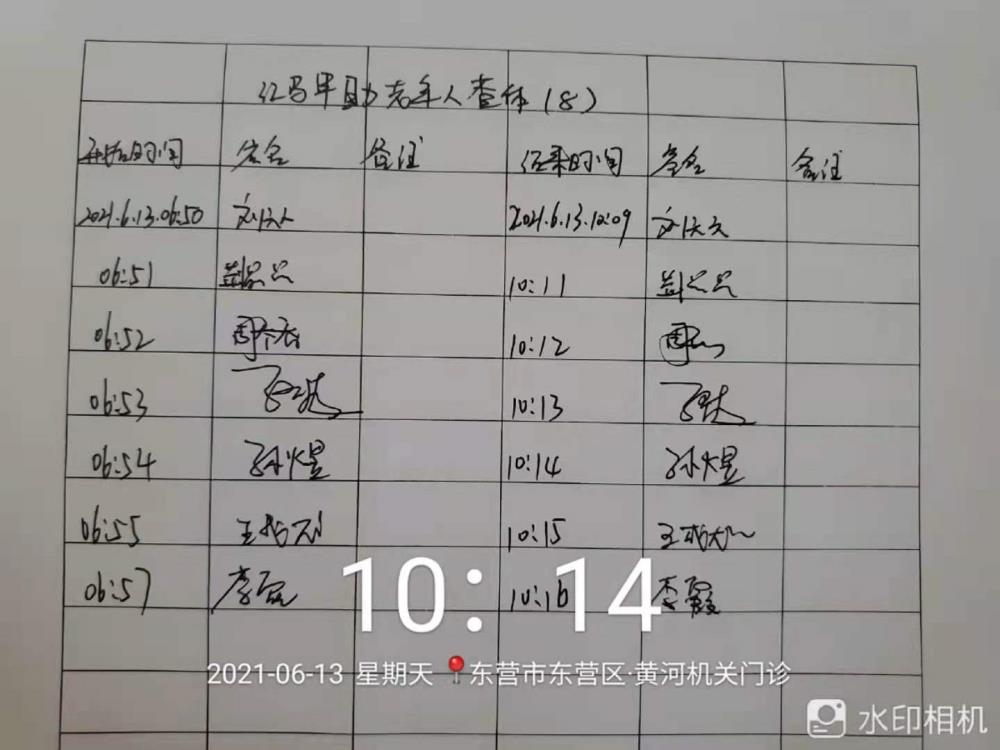 红马甲助老年人查体（8）
开始时间 签名 备注 结束时间 签名 备注
2021.6.13.06:50 2021.6.13.10:09
06:51 10:11
06:52 周 10:12 周
06:53 10:13
06:54 孙煜 10:14 孙煜
06:55 王 10:15 王
06:57 李霞 10:16 李霞
10:14
2021-06-13 星期天 东营市东营区·黄河机关门诊
水印相机